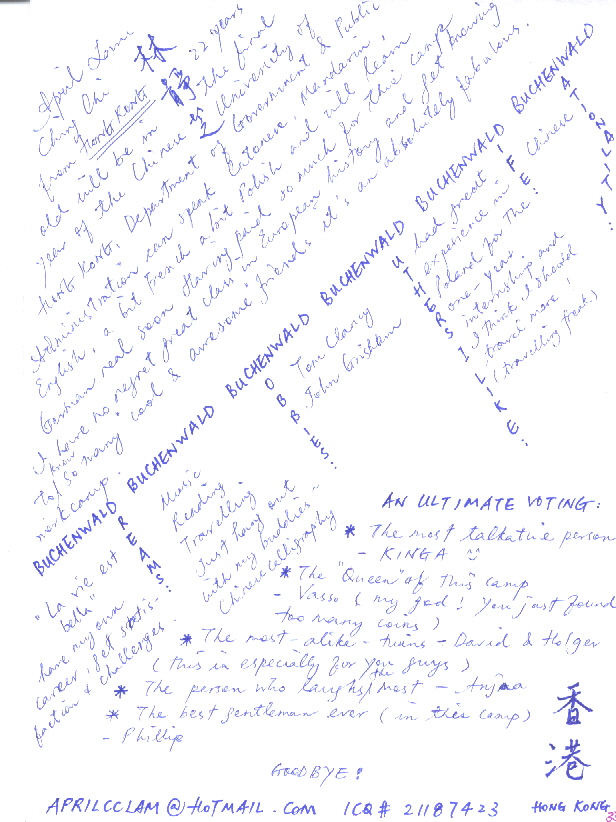 April Lam
Ching Chi 林靜芝 22 years
from HONG KONG
old will be in the final
year of the Chinese University of
HONG KONG, Department of Government & Public
Administration can speak Cantonese, Mandarin,
English, a bit French a bit Polish and will learn
German real soon Having paid so much for this camp
I have no regret great class in European history and get knowing
to know so many cool & awesome friends it's an absolutely fabulous
workcamp.
BUCHENWALD BUCHENWALD BUCHENWALD BUCHENWALD BUCHENWALD BUCHENWALD
NATIONALITY:
Chinese
LIFE:
had great
experience in
Poland for the
one-year
internship and
I think I should
travel more!
(travelling freak)
AUTHERS I LIKE:
Tom Clancy
John Grisham
HOBBIES:
Music
Reading
Travelling
Just hang out
with my buddies~
Chinese calligraphy
DREAMS:
"La vie est
bella"
have my own
career, get satis-
faction & challenges -
AN ULTIMATE VOTING:
* The most talkative person
- KINGA
* The "Queen" of this camp
- Vasso (my god! You just found
too many coins)
* The most-alike-twins - David & Holger
(this is especially for you guys)
* The person who laughs the most - Anjaa
* The best gentleman ever (in this camp)
- Phillip
GOODBYE!
香港
APRILCCLAM@HOTMAIL.COM ICQ# 21187423 HONG KONG